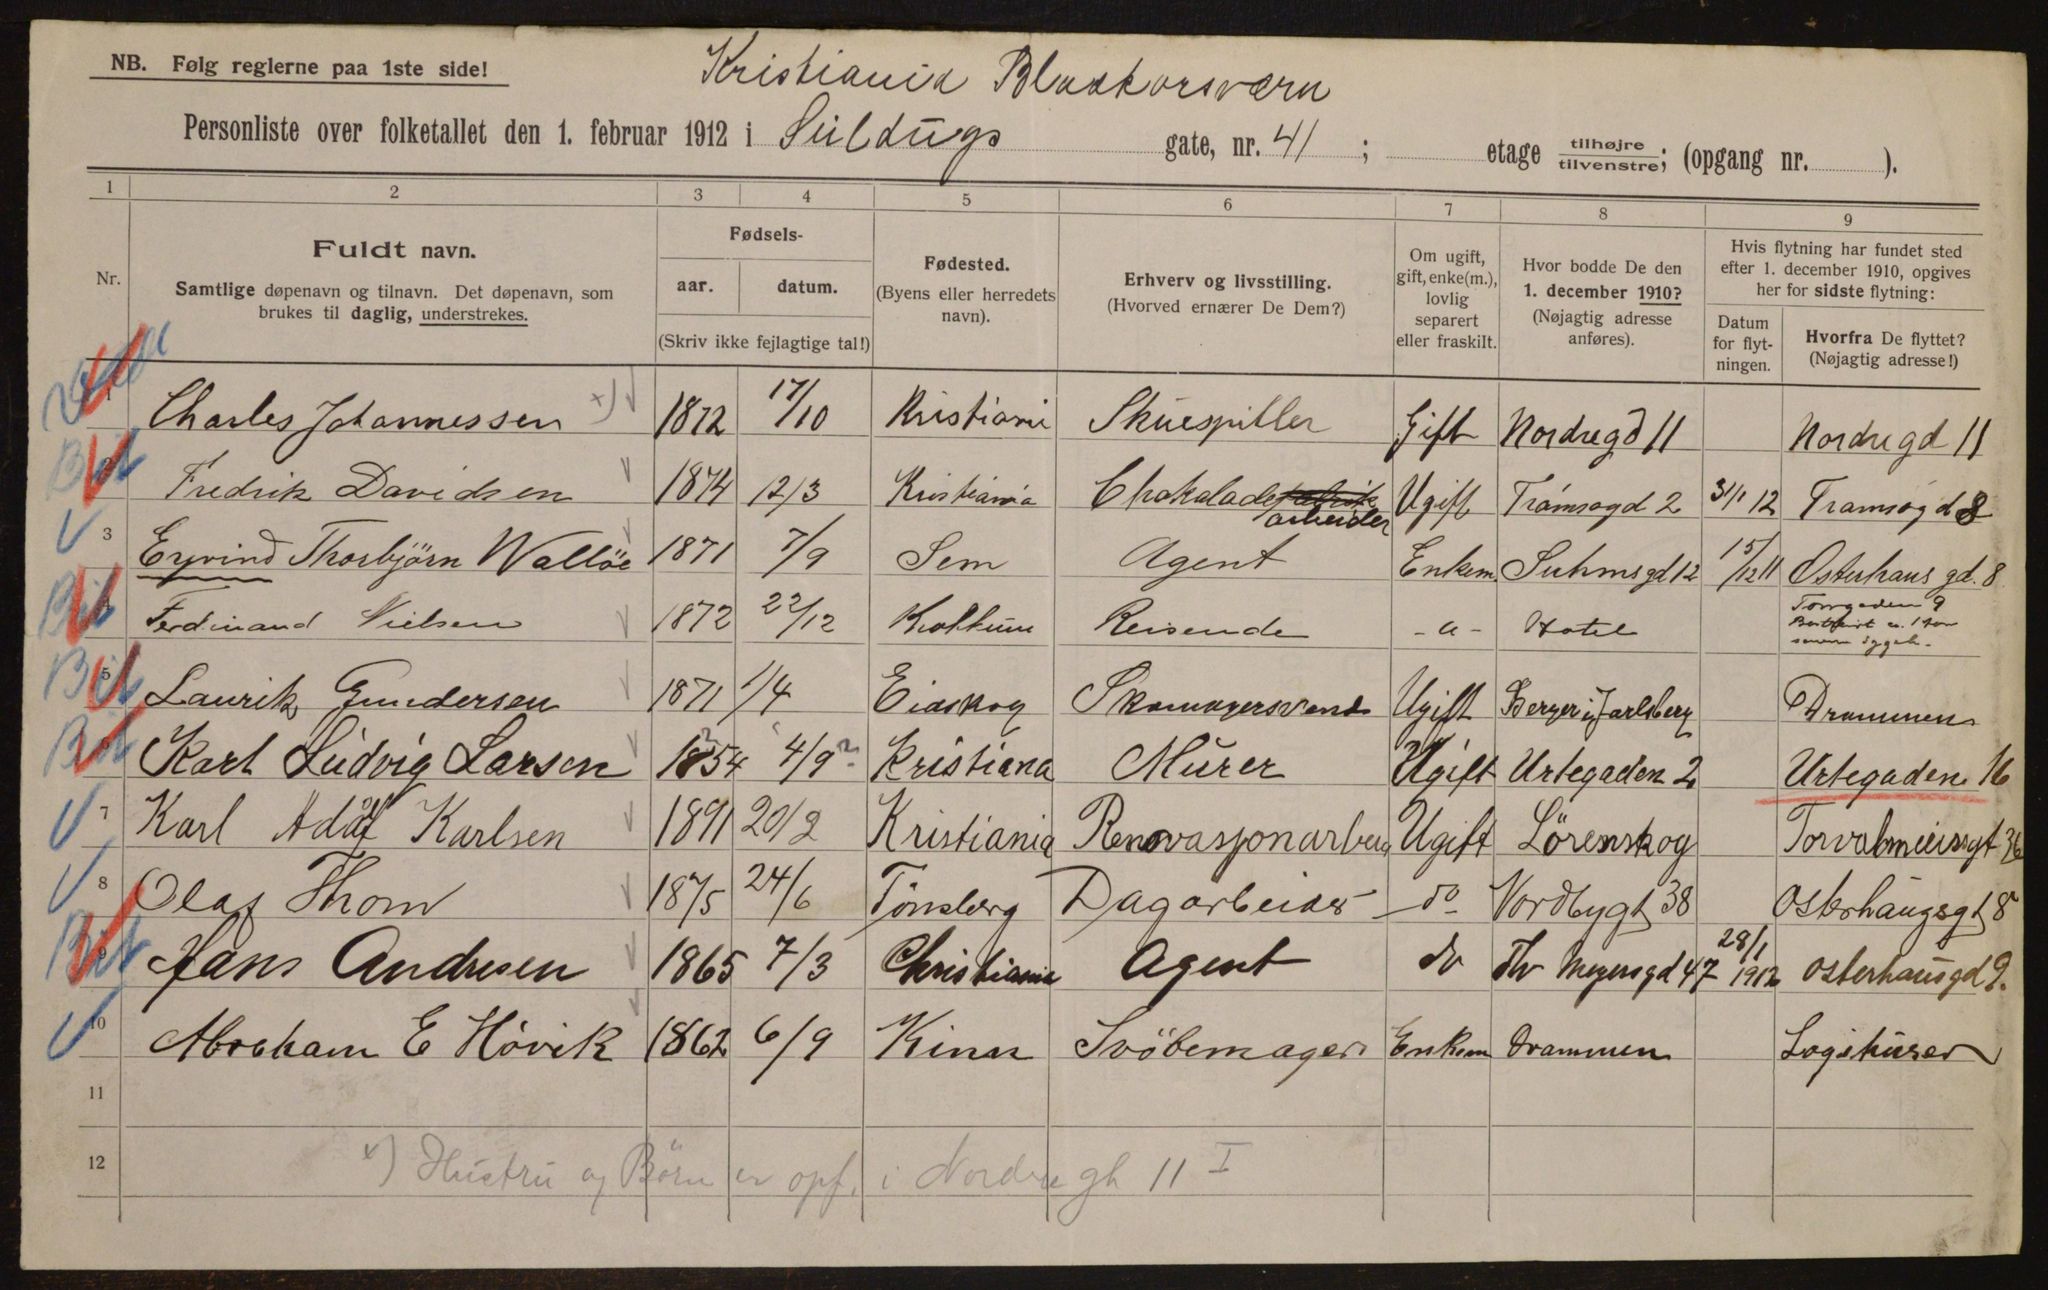 NB. Følg reglerne paa 1ste side!
Kristiania Blaakorsværn
Personliste over folketallet den 1. februar 1912 i gate, nr. 41 ; etage tilhøjre tilvenstre; (opgang nr. ).
1 2 3 4 5 6 7 8 9
Nr.
Fuldt navn.
Samtlige døpenavn og tilnavn. Det døpenavn, som
brukes til daglig, understrekes.
Fødsels-
aar. datum.
(Skriv ikke fejlagtige tal!)
Fødested.
(Byens eller herredets
navn).
Erhverv og livsstilling.
(Hvorved ernærer De Dem?)
Om ugift,
gift, enke(m.),
lovlig
separert
eller fraskilt.
Hvor bodde De den
1. december 1910?
(Nøjagtig adresse
anføres).
Hvis flytning har fundet sted
efter 1. december 1910, opgives
her for sidste flytning:
Datum
for flyt-
ningen.
Hvorfra De flyttet?
(Nøjagtig adresse!)
1 Charles Johannessen x) 1872 17/10 Kristiania Skuespiller Gift Nordregd 11 Nordregd 11
2 Fredrik Davidsen 1874 12/3 Kristiania Chokolade arbeider Ugift Tromsogd 2 31/1 12 Tramsøgd 8
3 Eyvind Thorbjörn Wallöe 1871 7/9 Sem Agent Enkem Suhmsgd 12 15/12 11 Osterhaus gd. 8
4 Ferdinand Nielsen 1872 22/12 Reisende - " - Hotel Torvgaden 9
5 Laurik Gundersen 1871 1/4 Eidskog Skomagersvend Ugift Berger i Jarlsberg Drammen
6 Karl Ludvig Larsen 1854 4/9 ? Kristiana Murer Ugift Urtegaden 2 Urtegaden 16
7 Karl Adolf Karlsen 1891 20/2 Kristiania Renovasjonarbeid Ugift Lörenskog Torvalmeiersgt 36
8 Olaf Thom 1875 24/6 Tönsberg Dagarbeider do Nordbygt 38 Osterhausgt 8
9 Hans Andresen 1865 7/3 Christiania Agent do Th Meyersgd 47 28/1 1912 Osterhausgd 9.
10 Abraham E Hövik 1862 6/9 Kinn Svöbemager Enkem Drammen Logihuser
11
12 x) Hustru og Börn er opf. i Nordregt 11 I